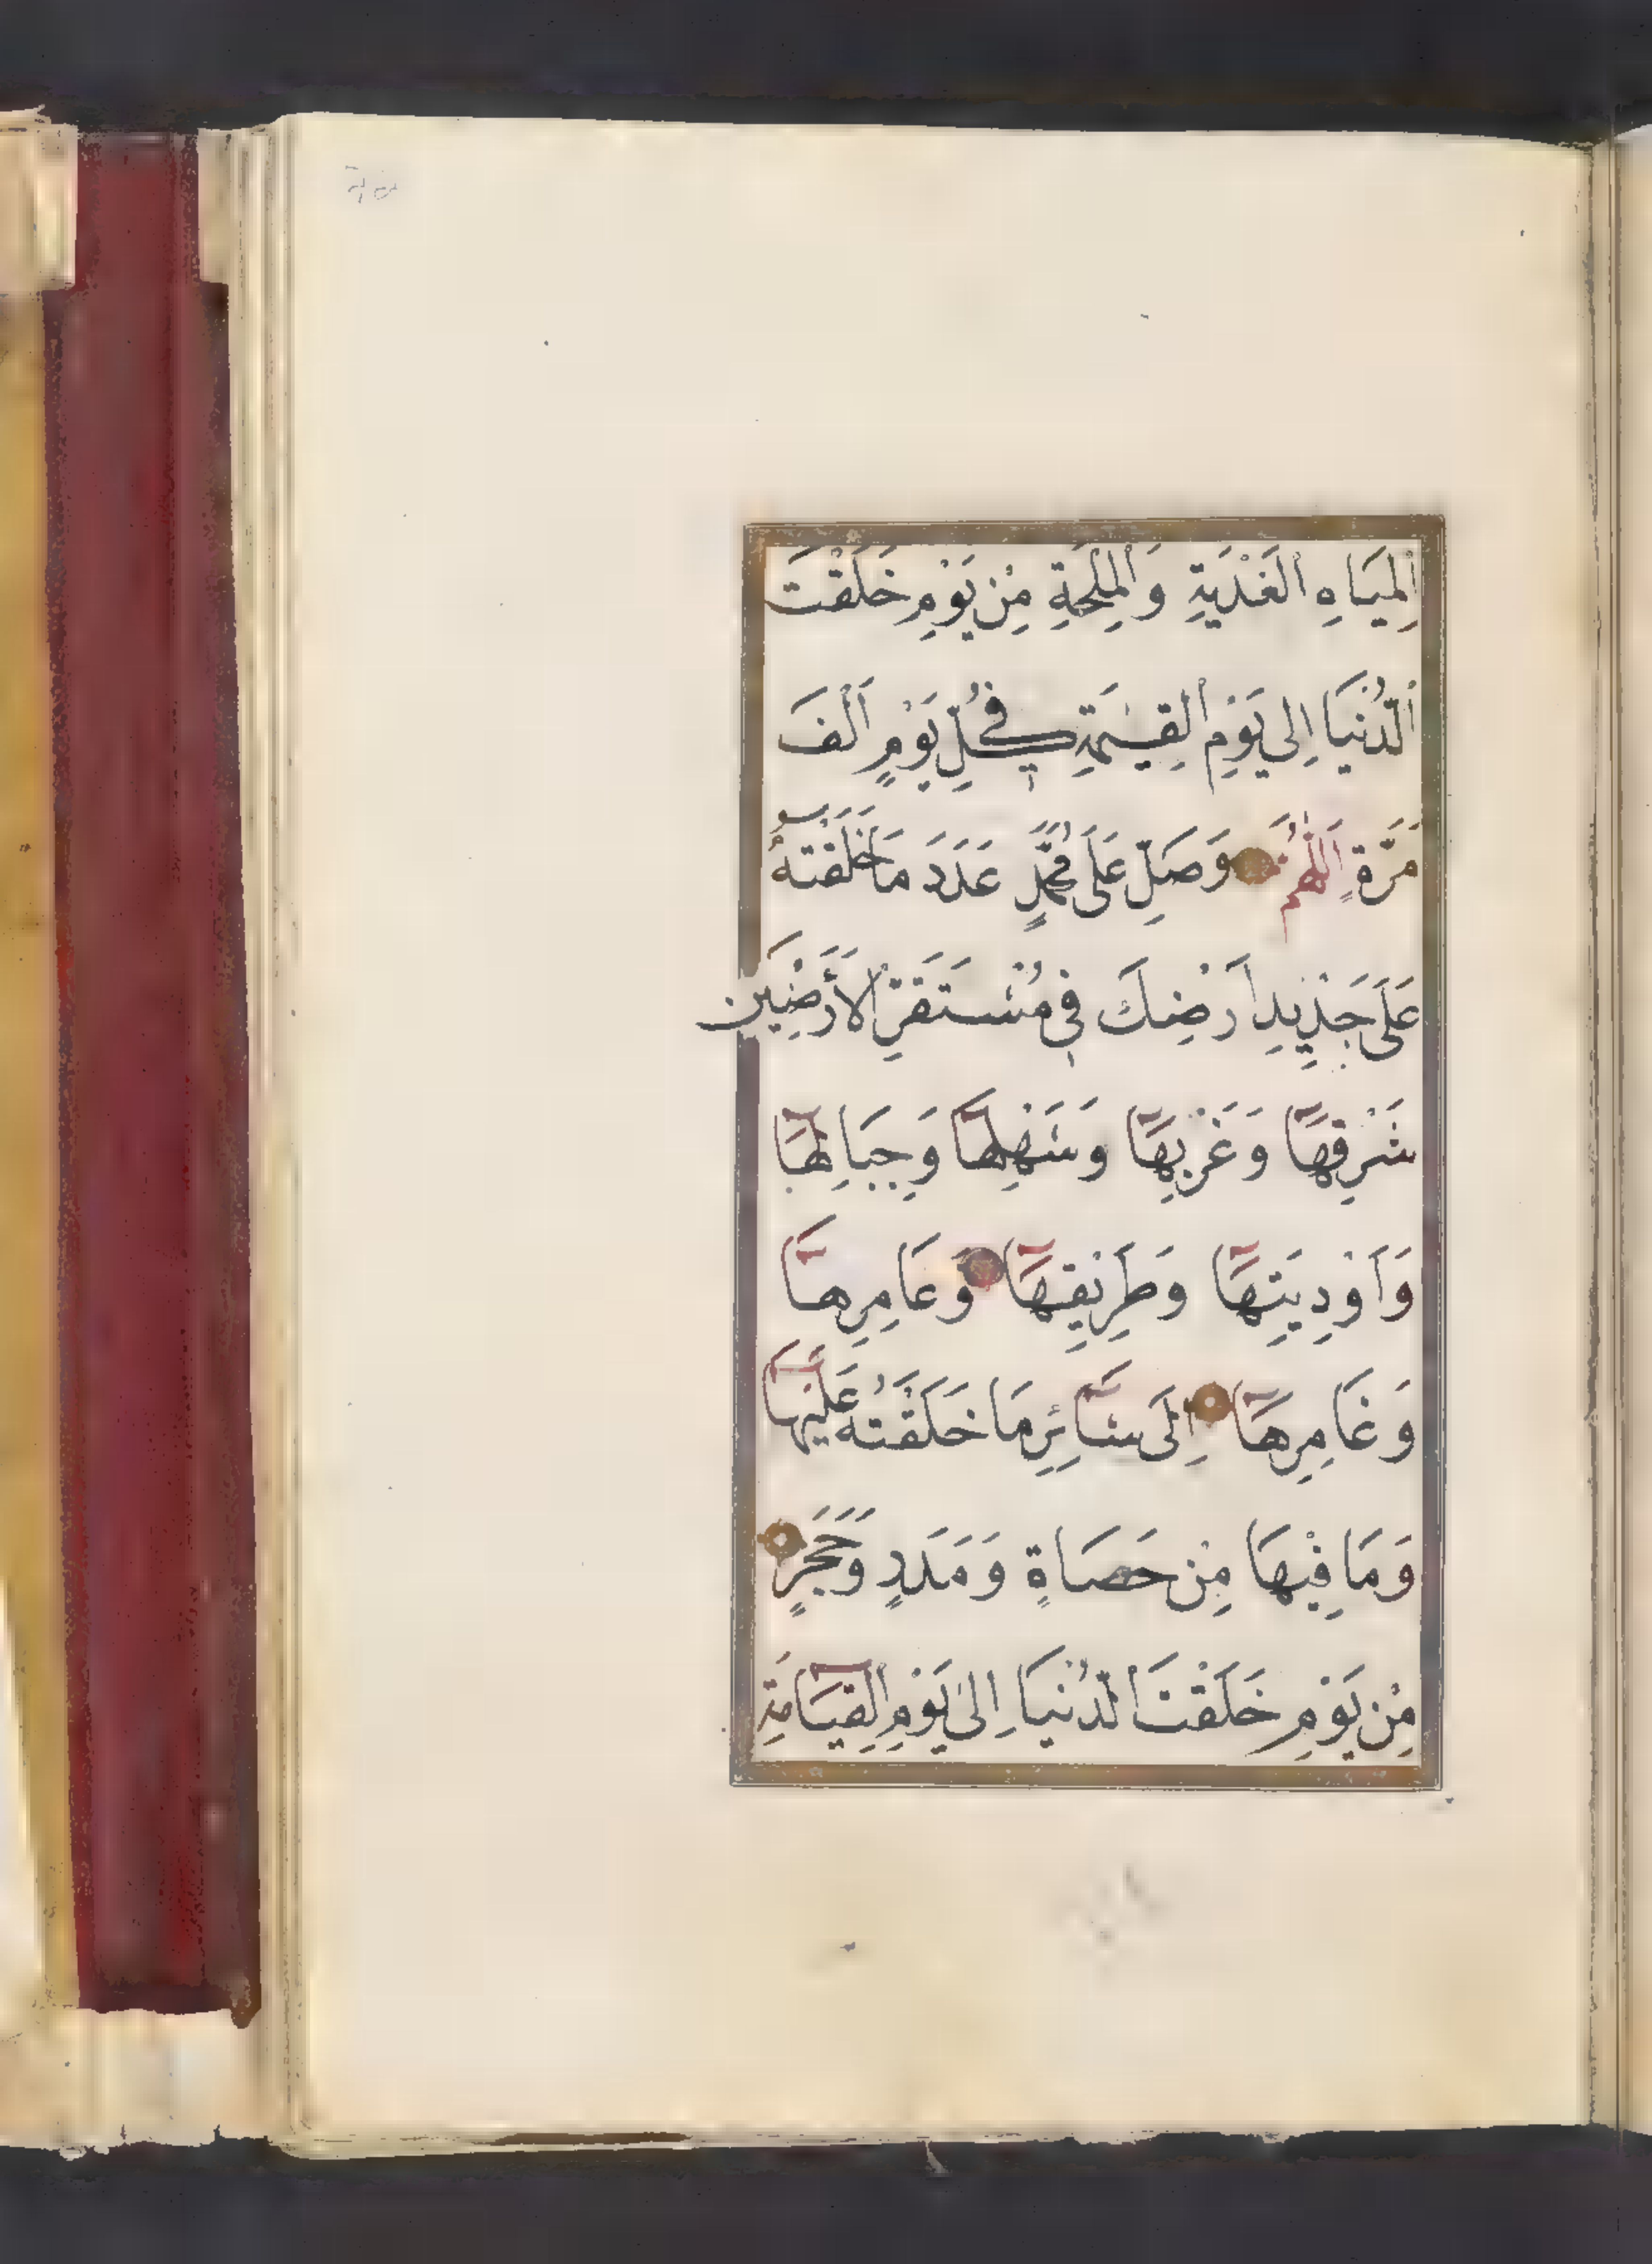 اَلْمِيَاهِ الْعَذْبَةِ وَالْمِلْحَةِ مِنْ يَوْمِ خَلَقْتَ
الدُّنْيَا اِلٰى يَوْمِ الْقِيٰمَةِ فِي كُلِّ يَوْمٍ اَلْفَ
مَرَّةٍ اَللّٰهُمَّ وَصَلِّ عَلَى مُحَمَّدٍ عَدَدَ مَا خَلَقْتَهُ
عَلَى جَدِيدِ اَرْضِكَ فِي مُسْتَقَرِّ الْأَرَضِينَ
شَرْقِهَا وَغَرْبِهَا وَسَهْلِهَا وَجِبَالِهَا
وَاَوْدِيَتِهَا وَطَرِيقِهَا وَعَامِرِهَا
وَغَامِرِهَا اِلَى سَائِرِ مَا خَلَقْتَهُ عَلَيْهَا
وَمَا فِيهَا مِنْ حَصَاةٍ وَمَدَرٍ وَحَجَرٍ
مِنْ يَوْمِ خَلَقْتَ الدُّنْيَا اِلٰى يَوْمِ الْقِيَامَةِ